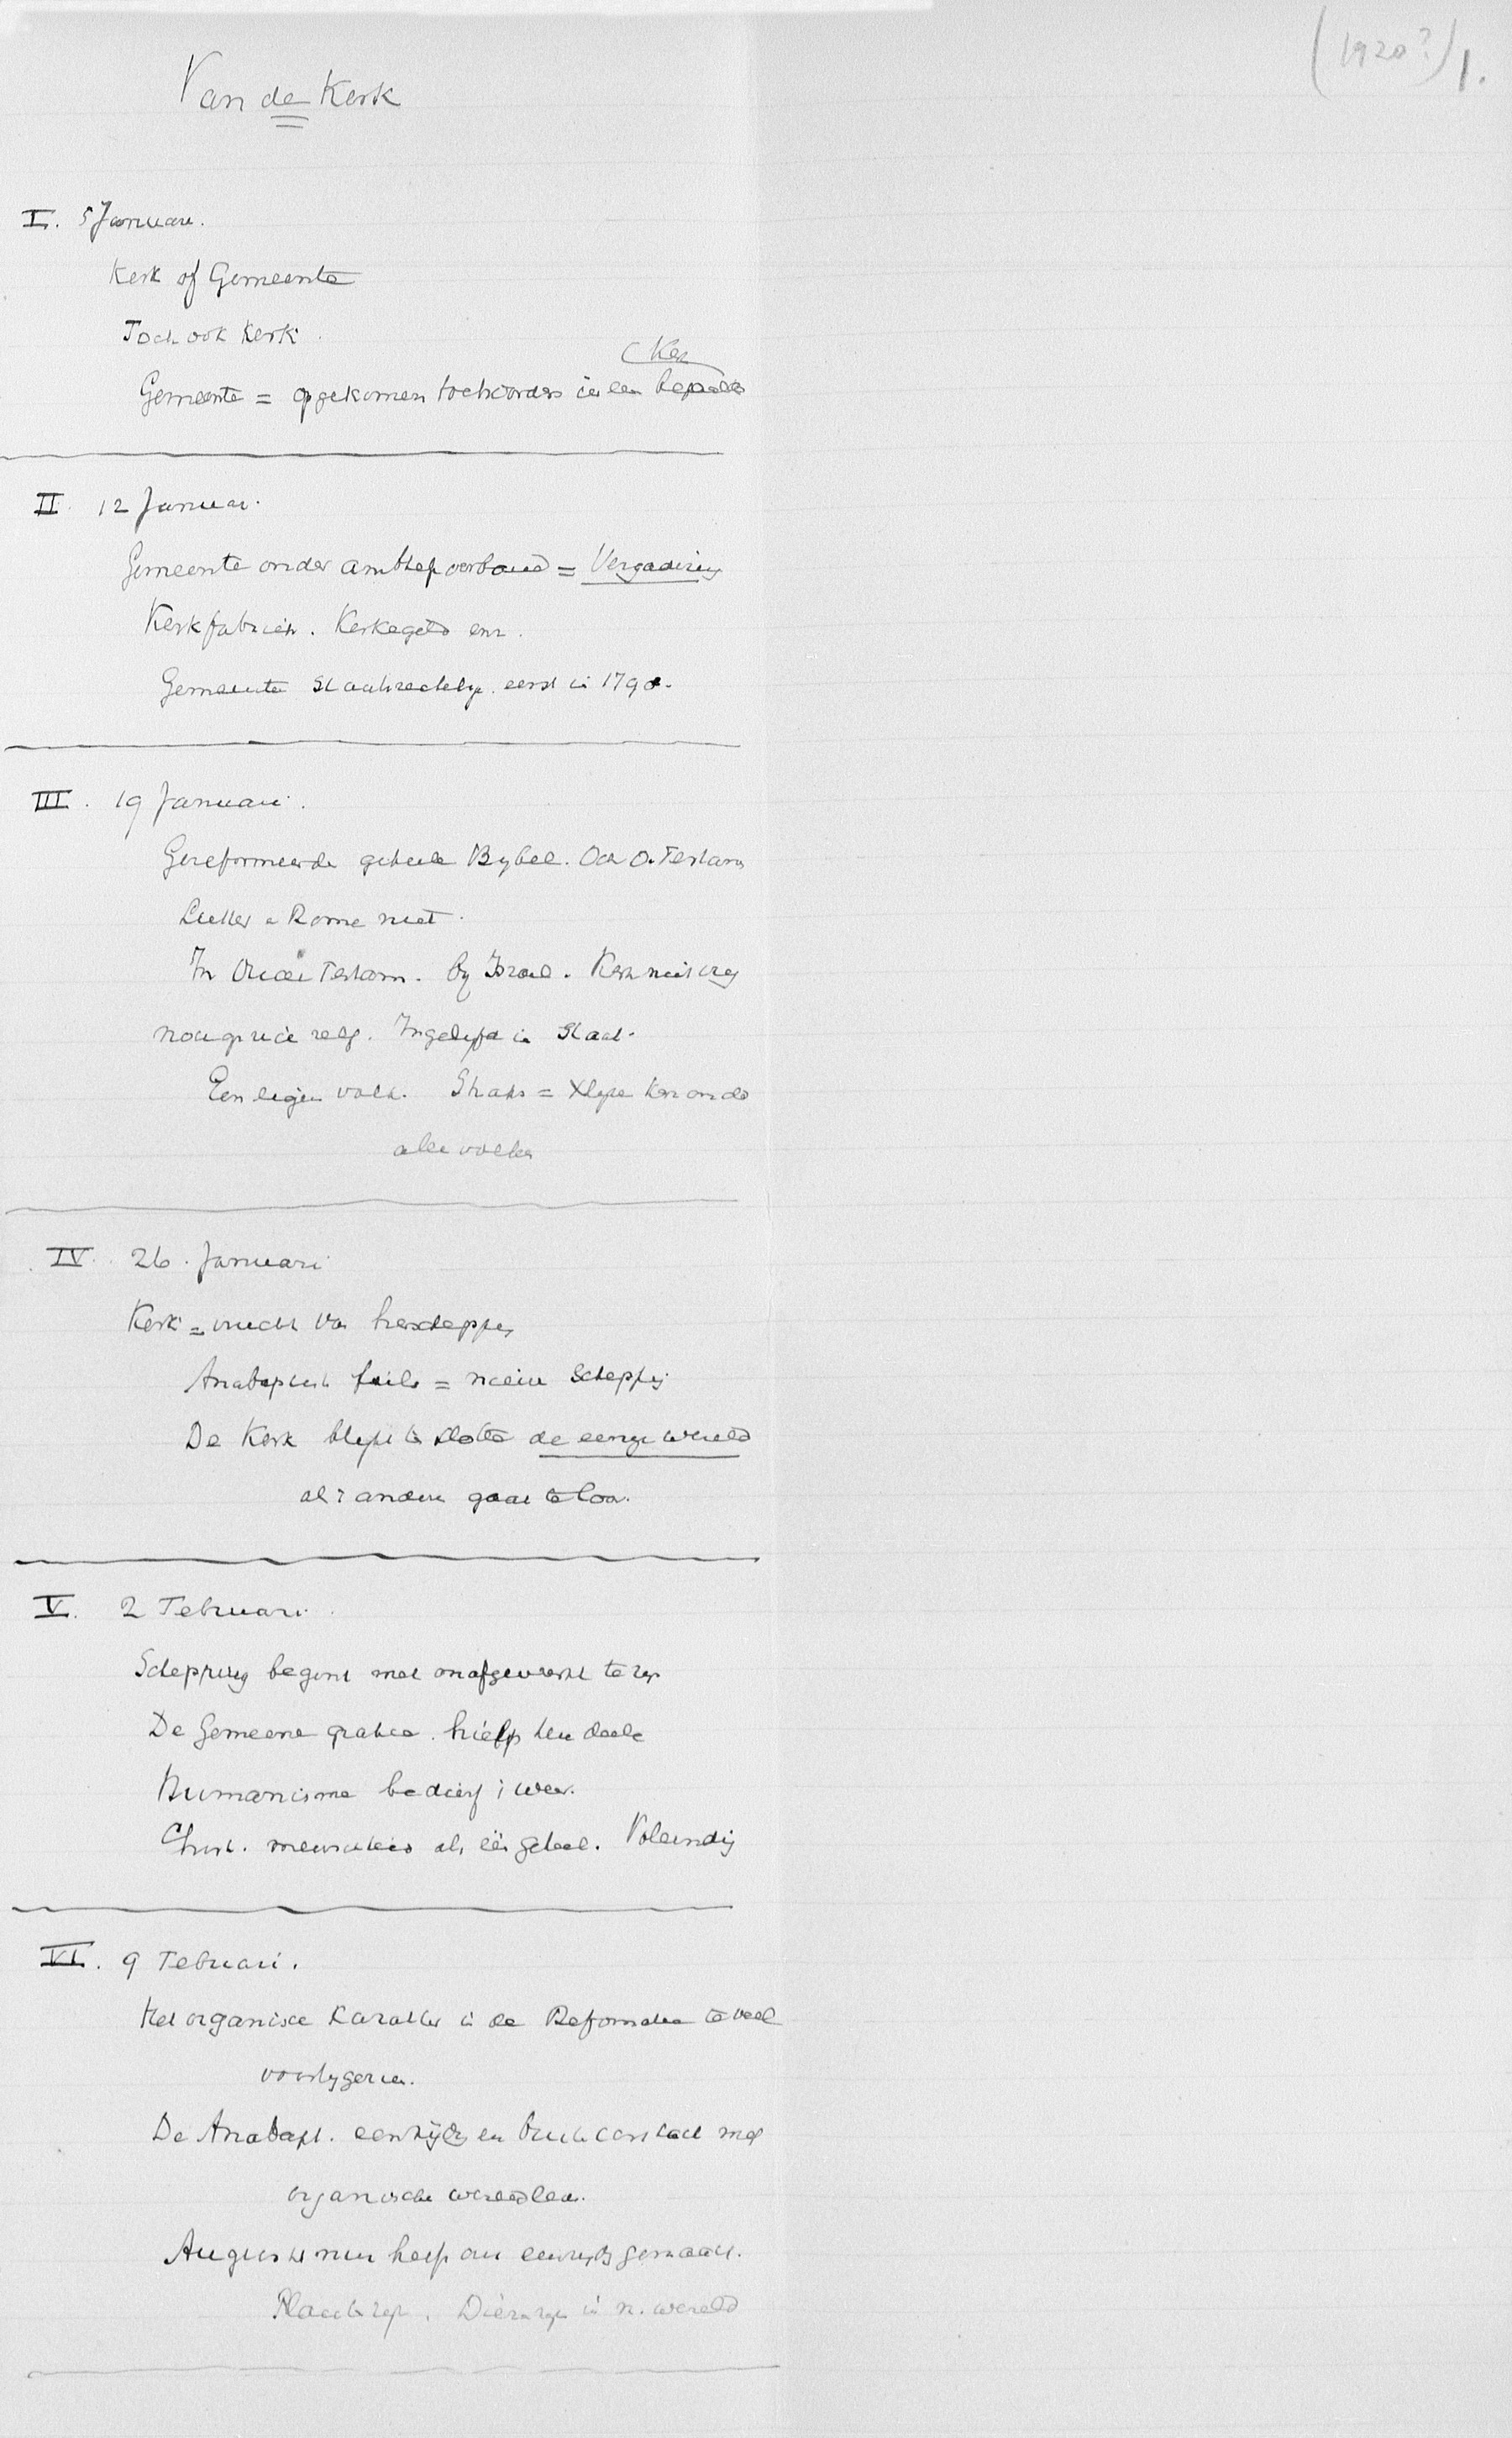 (1920?) 1.
Van de Kerk
I. 5 Januari.
Kerk of Gemeente
Toch ook Kerk.
Kerk
Gemeente = opgekomen toehoorders in een bepaald
II. 12 Januari.
Gemeente onder ambtelijk verband = Vergadering
Kerkfabriek. Kerkegoed enz.
Gemeente staatsrechtelijk eerst in 1798.
III. 19 Januari.
Gereformeerde geheele Bijbel. Ook O. Testam
Luther en Rome niet.
In Oude Testam. bij Israel. Kerk niet vrij
noch vrije relig. Ingelijfd in Staat.
Een eigen volk. Straks = Xlijke Kerk onder
alle volken
IV. 26. Januari
Kerk = vrucht van herschepping
Anabaptist feil = nieuwe schepping
De Kerk blijkt ten slotte de eenige wereld
al 't andere gaat te loor.
V. 2 Februari.
Schepping begint met onafgewerkt te zijn
De Gemeene gratie. hielp ten deele
Humanisme bedierf 't weer.
Christ. menschheid als één geheel. Voleinding
VI. 9 Februari.
Het organisch karakter in de Reformatie te veel
voorbijgezien.
De Anabapt. eenzijdig en buiten contact met
organische wereldleven.
Augustinus heeft ons eenzijdig gemaakt.
Plant rijk. Dierenrijk in n. wereld